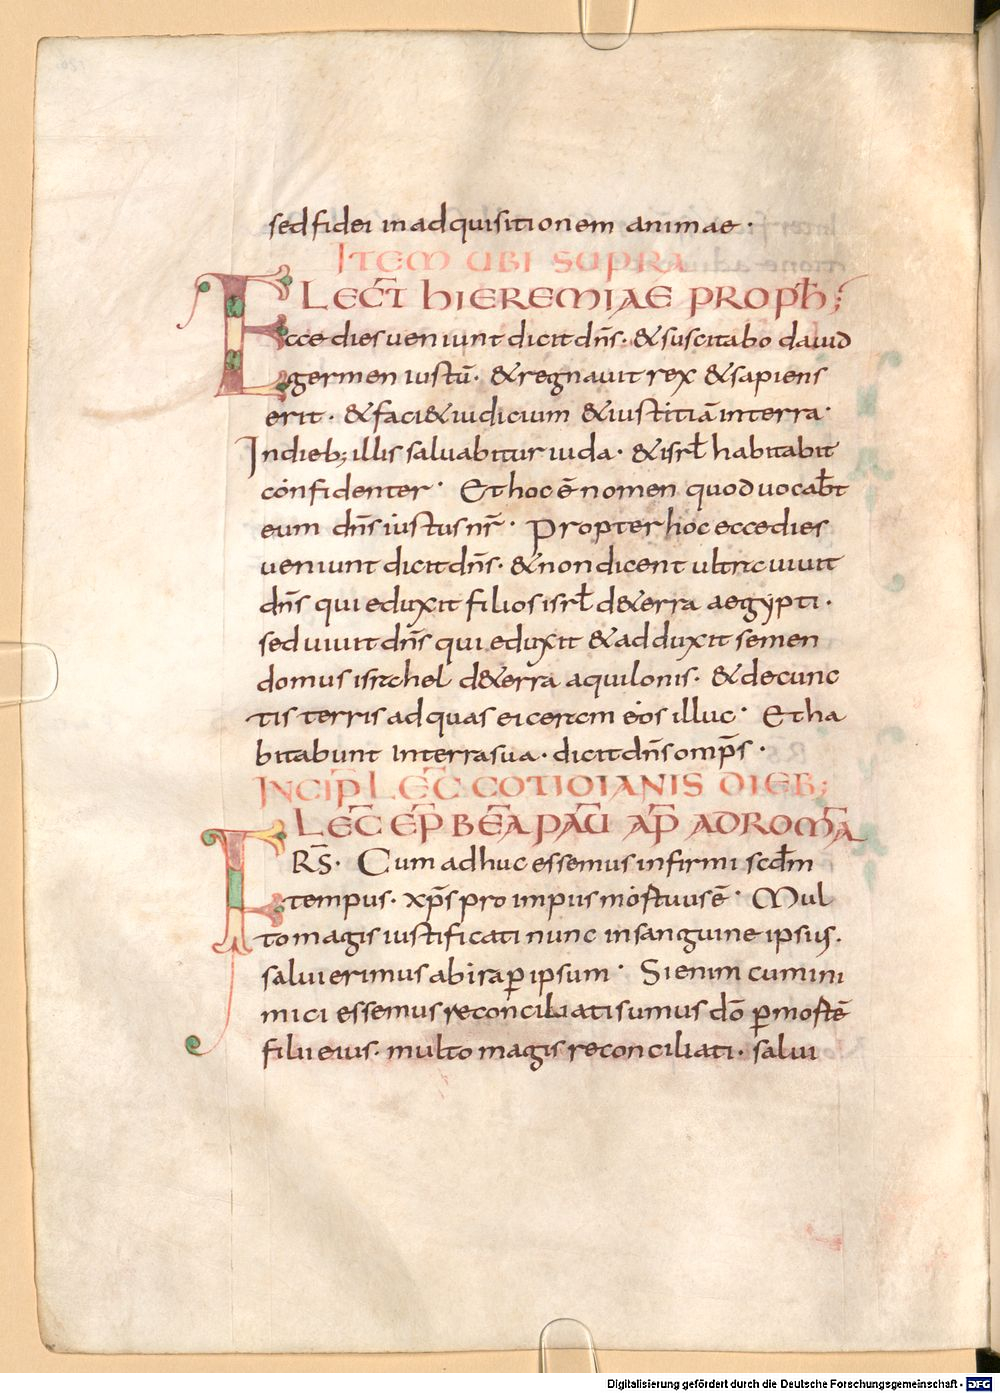 sed fidei in adquisitionem animae ·
ITEM UBI SUPRA
LECT̄ HIEREMIAE PROPH̄;
Ecce dies ueniunt dicit dn̄s · & suscitabo dauid
germen iustū · & regnauit rex & sapiens
erit · & faci& iudicium & iustitiā in terra ·
In dieb; illis saluabitur iuda · & isrl̄ habitabit
confidenter · Et hoc ē nomen quod uocab̄t
eum dn̄s iustus nr̄ · Propter hoc ecce dies
ueniunt dicit dn̄s · & non dicent ultra uiuit
dn̄s qui eduxit filios isrl̄ de terra aegypti ·
sed uiuit dn̄s qui eduxit & adduxit semen
domus israhel de terra aquilonis · & de cunc
tis terris ad quas eieceram eos illuc · Et ha
bitabunt in terra sua · dicit dn̄s omp̄s ·
INCIP̄ LEC̄ COTIDIANIS DIEB;
LEC̄ EP̄ BEĀ PAŪ AP̄ AD ROMĀ
FRS̄ · Cum adhuc essemus infirmi scd̄m
tempus · xp̄s pro impiis mortuus ē · Mul
to magis iustificati nunc in sanguine ipsius ·
salui erimus ab ira p̄ ipsum · Si enim cum ini
mici essemus reconciliati sumus dō p̄ mortē
filii eius · multo magis reconciliati · salui
Digitalisierung gefördert durch die Deutsche Forschungsgemeinschaft - DFG